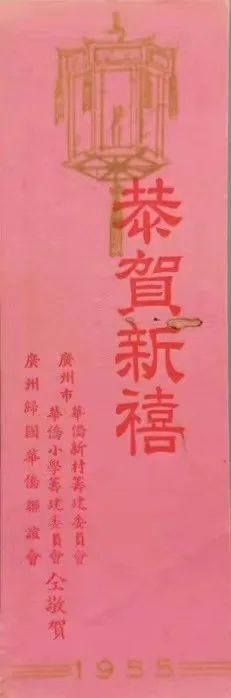 恭賀新禧
廣州市
華僑新村籌建委員會
華僑小學籌建委員會
廣州歸國華僑聯誼會
仝敬賀
1955